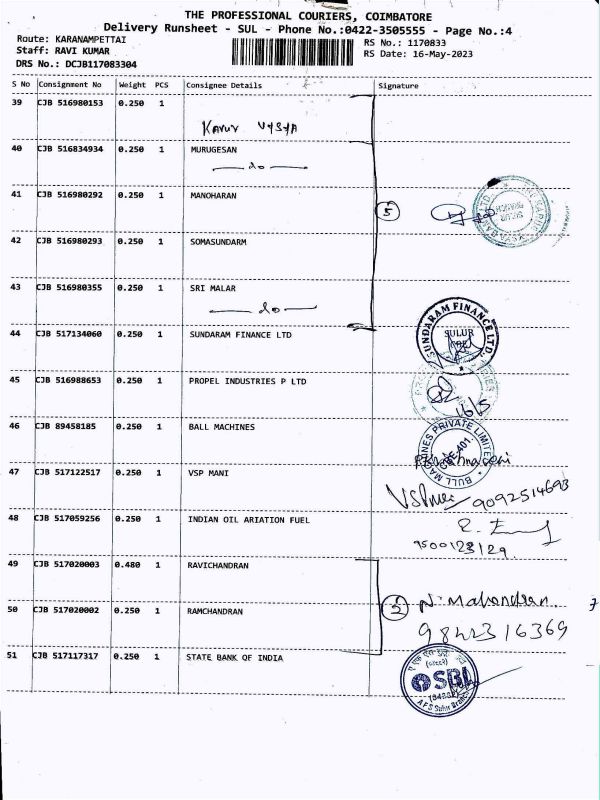 THE PROFESSIONAL COURIERS, COIMBATORE
Delivery Runsheet - SUL - Phone No.:0422-3505555 - Page No.:4
Route: KARANAMPETTAI
RS No.: 1170833
Staff: RAVI KUMAR
RS Date: 16-May-2023
DRS No.: DCJB117083304
S No Consignment No Weight PCS Consignee Details Signature
39 CJB 516980153 0.250 1
Karur VYSYA
40 CJB 516834934 0.250 1 MURUGESAN
do
41 CJB 516980292 0.250 1 MANOHARAN
5
SULUR BRANCH
42 CJB 516980293 0.250 1 SOMASUNDARM
43 CJB 516980355 0.250 1 SRI MALAR
do
SUNDARAM FINANCE LTD.,
SULUR
44 CJB 517134060 0.250 1 SUNDARAM FINANCE LTD
45 CJB 516988653 0.250 1 PROPEL INDUSTRIES P LTD
16/5
46 CJB 89458185 0.250 1 BALL MACHINES
BULL MACHINES PRIVATE LIMITED
47 CJB 517122517 0.250 1 VSP MANI
9092514693
48 CJB 517059256 0.250 1 INDIAN OIL ARIATION FUEL
9500128129
49 CJB 517020003 0.480 1 RAVICHANDRAN
2 N. Mahendran.
50 CJB 517020002 0.250 1 RAMCHANDRAN
9842316369
51 CJB 517117317 0.250 1 STATE BANK OF INDIA
SBI
AFS Sulur Branch